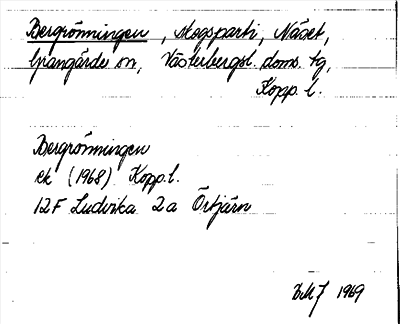 Bergrönningen, Skogsparti, Näset,
Grangärde sn, Västerbergsl. doms. tg,
Kopp. l.
Bergrönningen
ek (1968) Kopp. l.
12F Ludvika 2a Örtjärn
1969